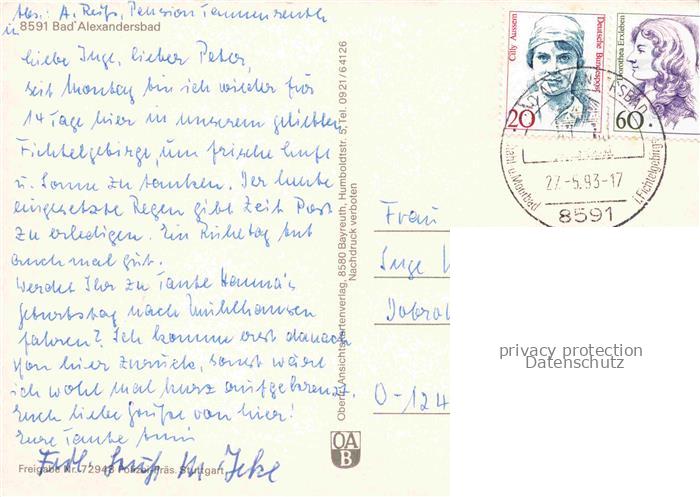 Abs: A. Reiß, Pension Tannenreuth
in
8591 Bad Alexandersbad
liebe Inge, lieber Peter,
seit Montag bin ich wieder für
14 Tage hier in unserem geliebten
Fichtelgebirge, um frische Luft
u. Sonne zu tanken. Der heute
eingesetzte Regen gibt Zeit Post
zu erledigen. Ein Ruhetag tut
auch mal gut.
Werdet Ihr zu Tante Hanna's
Geburtstag nach Mühlhausen
fahren? Ich komme erst danach
von hier zurück, sonst wäre
ich wohl mal kurz aufgekreuzt.
Euch liebe Grüße von hier!
Eure Tante
Freigabe Nr. 72948 Polizei-Präs. Stuttgart
Oberfr. Ansichtskartenverlag, 8580 Bayreuth, Humboldtstr. 5, Tel. 0921/64126
Nachdruck verboten
OA
B
Cilly Aussem
Deutsche Bundespost
20
Dorothea Erxleben
60
27.-5.93-17
8591
i. Fichtelgebirge
Frau
Inge
O-124
privacy protection
Datenschutz